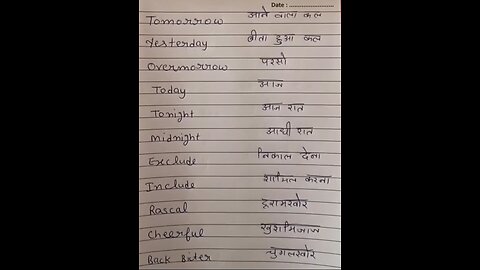 Date : ........................
Tomorrow आने वाला कल
Yesterday बीता हुआ कल
Overmorrow परसो
Today आज
Tonight आज रात
Midnight आधी रात
Exclude निकाल देना
Include शामिल करना
Rascal हरामखोर
Cheerful खुशमिजाज
Back Biter चुगलखोर